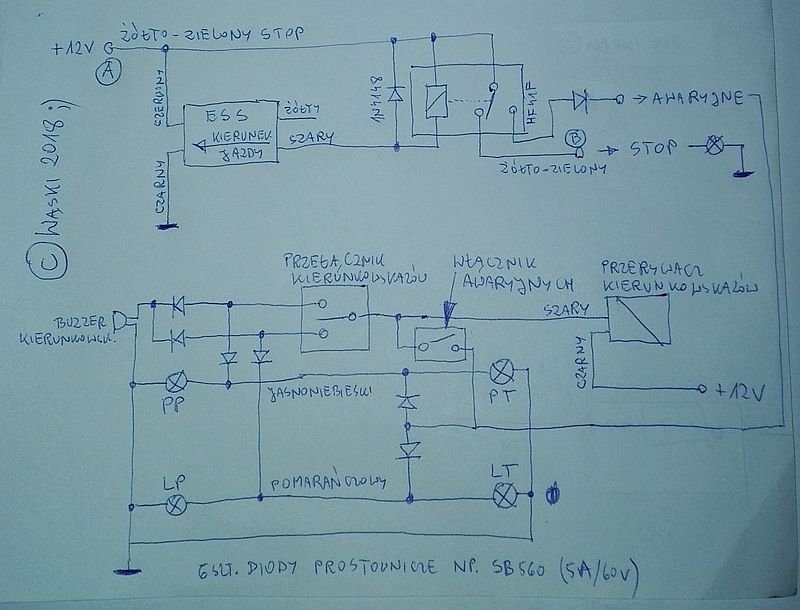 +12V ŻÓŁTO-ZIELONY STOP
A
CZERWONY
ESS
KIERUNEK
JAZDY
ŻÓŁTY
SZARY
CZARNY
1N4148
HF41F
→ AWARYJNE
B
→ STOP
ŻÓŁTO-ZIELONY
© WĄSKI 2018 ;)
PRZEŁĄCZNIK
KIERUNKOWSKAZÓW
WŁĄCZNIK
AWARYJNYCH
PRZERYWACZ
KIERUNKOWSKAZÓW
SZARY
CZARNY
+12V
BUZZER
KIERUNKOWCK.
PP
JASNONIEBIESKI
PT
LP
POMARAŃCZOWY
LT
6SZT. DIODY PROSTOWNICZE NP. SB560 (5A/60V)